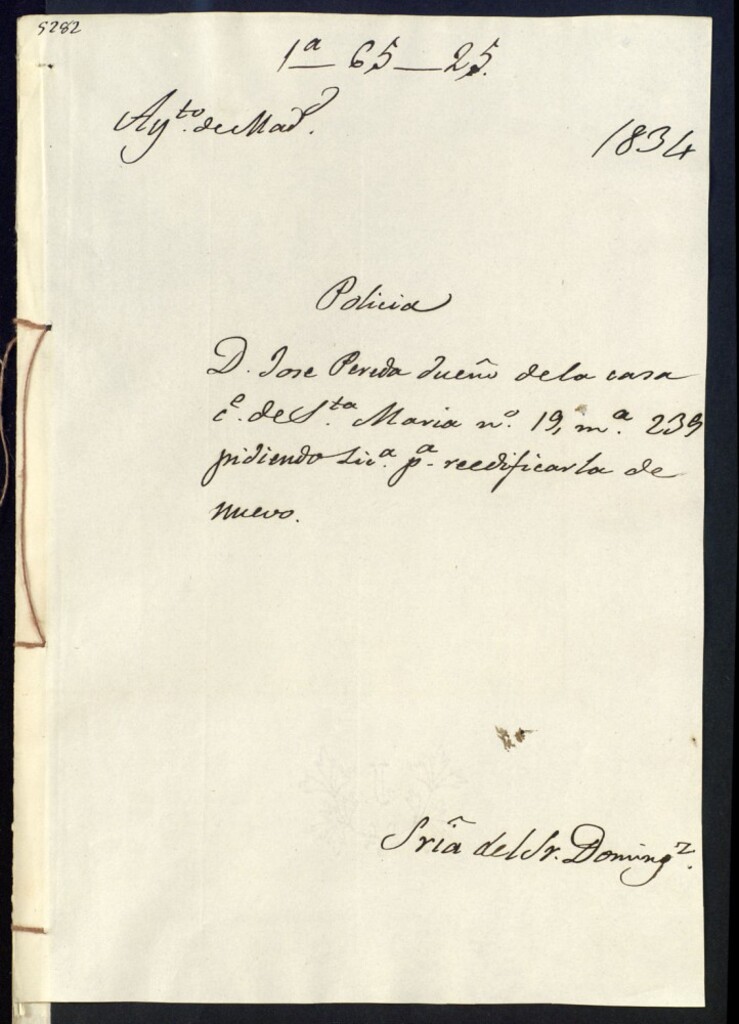 5282
1ª — 65 — 25.
Ay.to de Mad.d
1834
Policia
D. Jose Pereda dueño de la casa
c.e de S.ta Maria n.º 19, m.ª 239
pidiendo Lic.ª p.ª reedificarla de
nuevo.
Sria del Sr. Doming.z